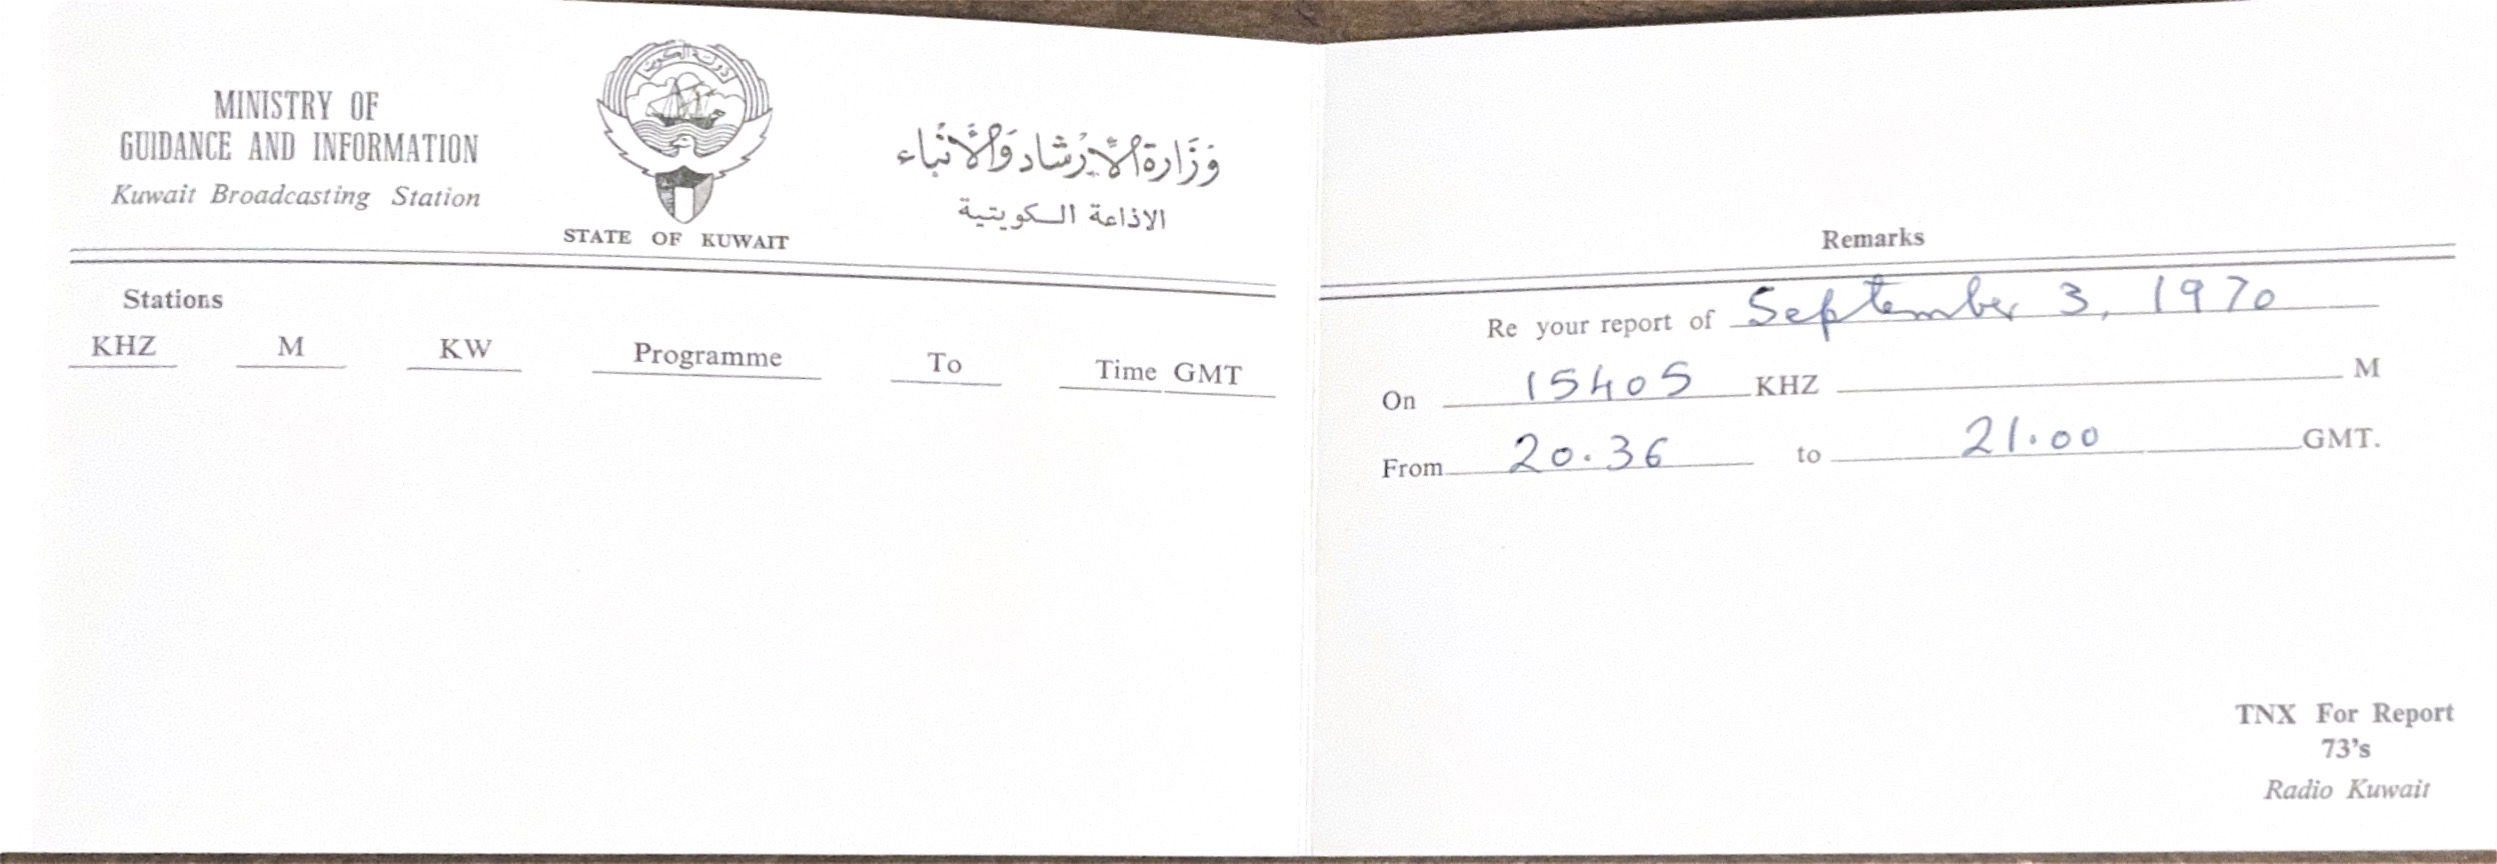 MINISTRY OF
GUIDANCE AND INFORMATION
Kuwait Broadcasting Station
دولة الكويت
STATE OF KUWAIT
وَزَارَة الإِرْشَاد وَالأَنْبَاء
الاذاعة الكويتية
Stations
KHZ M KW Programme To Time GMT
Remarks
Re your report of September 3, 1970
On 15405 KHZ M
From 20.36 to 21.00 GMT.
TNX For Report
73's
Radio Kuwait